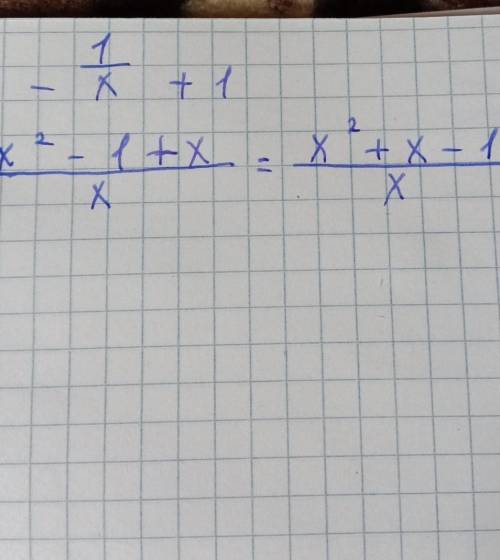 - 1/x + 1
x² - 1 + x / x = x² + x - 1 / x